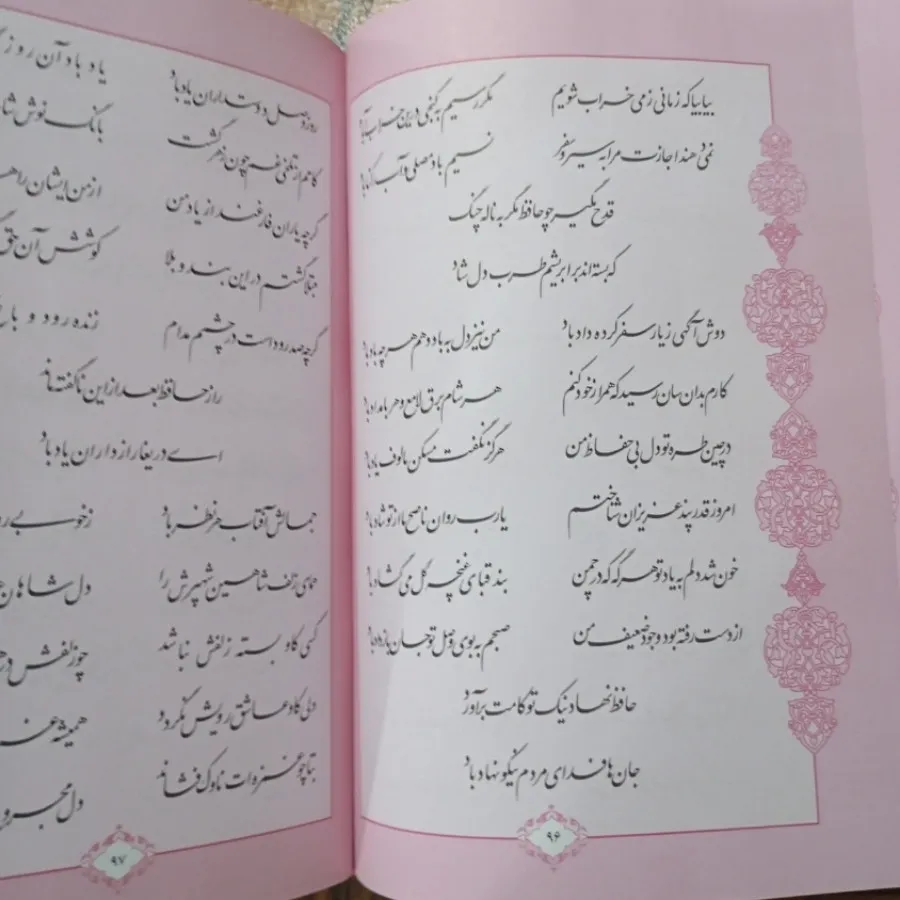 بیا بیا که زمانی ز می خراب شویم مگر رسیم به گنجی درین خراب آباد
نمی‌دهند اجازت مرا به سیر و سفر نسیم باد مصلی و آب رکناباد
قدح مگیر چو حافظ مگر به ناله چنگ
که بسته‌اند بر ابریشم طرب دل شاد
دوش آگهی ز یار سفر کرده داد باد من نیز دل به باد دهم هر چه باد باد
کارم بدان رسید که همراز خود کنم هر شام برق لامع و هر بامداد باد
در چین طره تو دل بی حفاظ من هرگز نگفت مسکن مالوف یاد باد
امروز قدر پند عزیزان شناختم یارب روان ناصح ما از تو شاد باد
خون شد دلم به یاد تو هر گه که در چمن بند قبای غنچه گل می‌گشاد باد
از دست رفته بود وجود ضعیف من صبحم به بوی وصل تو جان باز داد باد
حافظ نهاد نیک تو کامت برآورد
جان‌ها فدای مردم نیکو نهاد باد
۹۶
روز وصل دوستداران یاد باد یاد باد آن
کامم از تلخی غم چون زهر گشت بانگ نوش
گرچه یاران فارغند از یاد من از من ایشان را
مبتلا گشتم در این بند و بلا کوشش آن
گرچه صد رود است در چشمم مدام زنده رود و
راز حافظ بعد از این ناگفته ماند
ای دریغا رازداران یاد باد
جمالش آفتاب هر نظر باد ز خوبی
همای زلف شاهین شهپرش را دل شاهان
کسی کاو بسته زلفش نباشد چو زلفش
دلی کاو عاشق رویش نگردد همیشه
بتا چو غمزه‌ات ناوک فشاند دل
۹۷